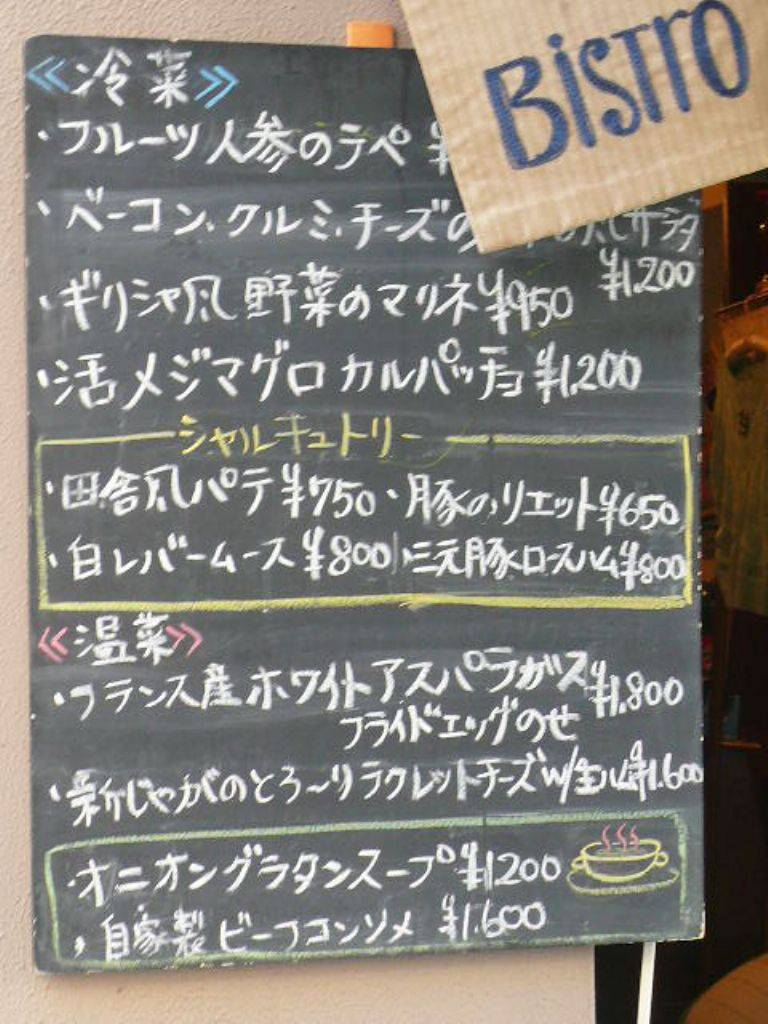 BISTRO
≪冷菜≫
・フルーツ人参のラペ ¥
・ベーコン、クルミ、チーズの サラダ
¥1,200
・ギリシャ風野菜のマリネ ¥950
・活〆ジマグロ カルパッチョ ¥1,200
シャルキュトリー
・田舎風パテ ¥750 ・豚のリエット ¥650
・白レバームース ¥800 ・三元豚ロースハム ¥800
≪温菜≫
・フランス産ホワイトアスパラガス ¥1,800
フライドエッグのせ
・新じゃがのとろ～りラクレットチーズ w/生ハム ¥1.600
・オニオングラタンスープ ¥1200
・自家製 ビーフコンソメ ¥1.600